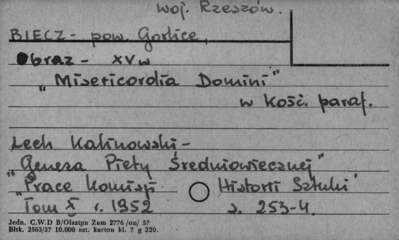 woj. Rzeszów.
BIECZ - pow. Gorlice,
Obraz - XV w
„Misericordia Domini"
w Kość. paraf.
Lech Kalinowski -
„Geneza Piety Średniowiecznej"
„Prace Komisji Historii Sztuki"
Tom X r. 1952 s. 253-4.
Jedn. C.W.D B/Olsztyn Zam 2776 /on/ 57
Bltk. 2563/57 10.000 szt. karton kl. 7 g 220.